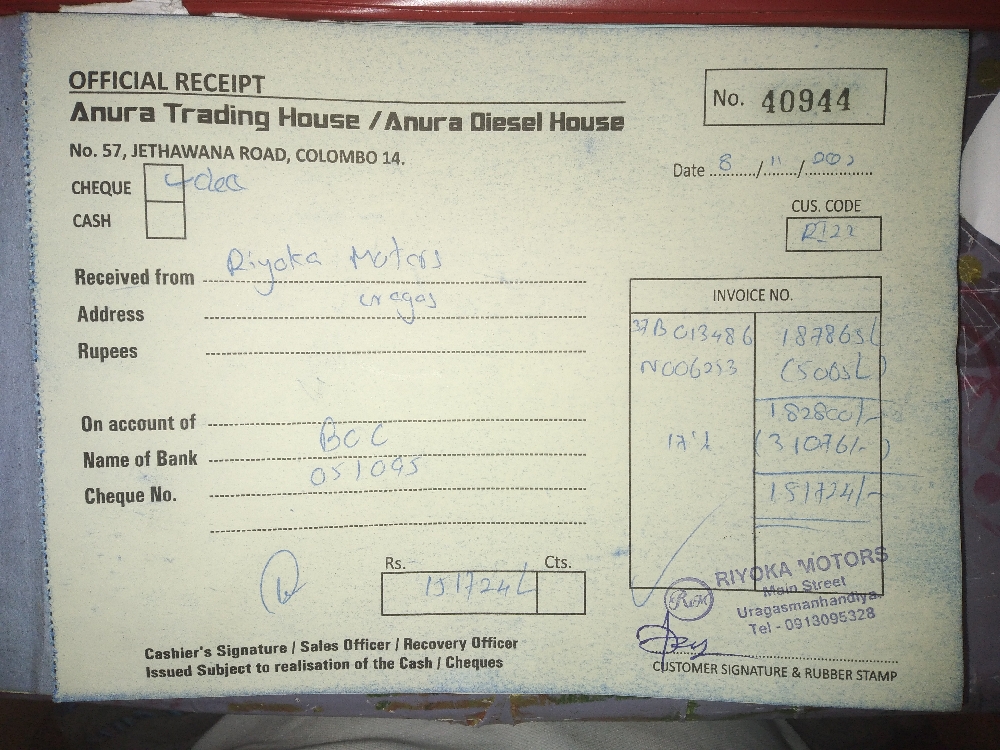 OFFICIAL RECEIPT
Anura Trading House / Anura Diesel House
No. 57, JETHAWANA ROAD, COLOMBO 14.
No. 40944
Date 8 / 11 /
CHEQUE
CASH
CUS. CODE
RI22
Received from Riyoka Motors
Address
Rupees
On account of
Name of Bank BCC
Cheque No. 051095
INVOICE NO.
37B 013486 187865/-
N006253 (5065/-
182800/-
17% (31076/-)
151724/-
Rs. Cts.
151724/-
RIYOKA MOTORS
Main Street
Uragasmanhandiya.
Tel - 0913095328
Cashier's Signature / Sales Officer / Recovery Officer
Issued Subject to realisation of the Cash / Cheques
CUSTOMER SIGNATURE & RUBBER STAMP